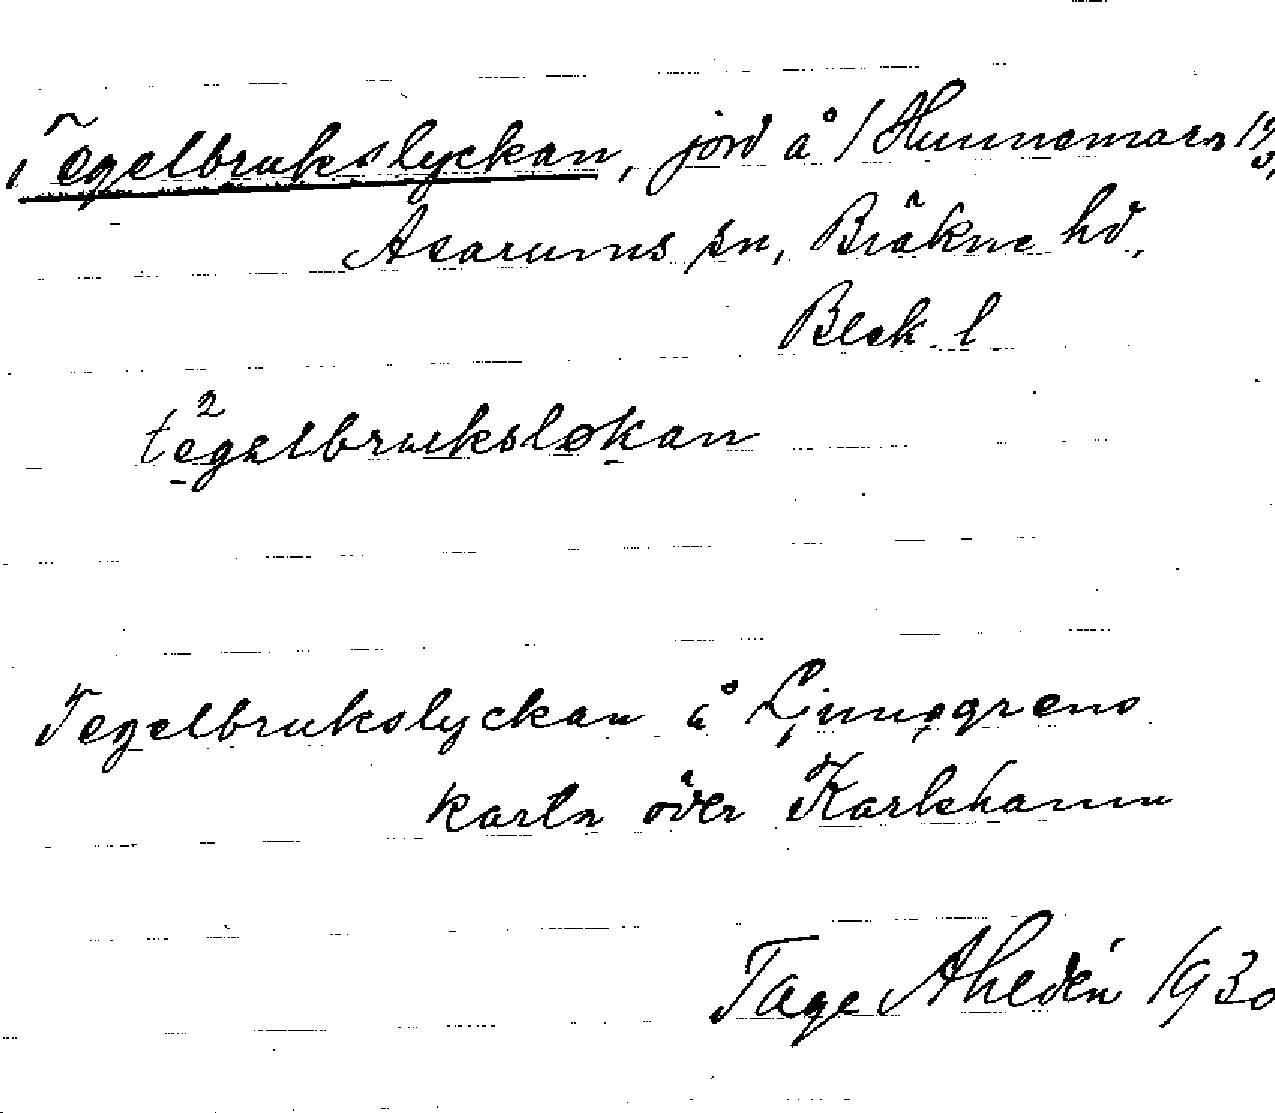 Tegelbrukslyckan, jord å /Hunnemara 19,
Asarums sn, Bräkne hd,
Blek. l
te²gelbruksløkan
Tegelbrukslyckan å Ljunggrens
karta över Karlshamn
Tage Ahldén 1930